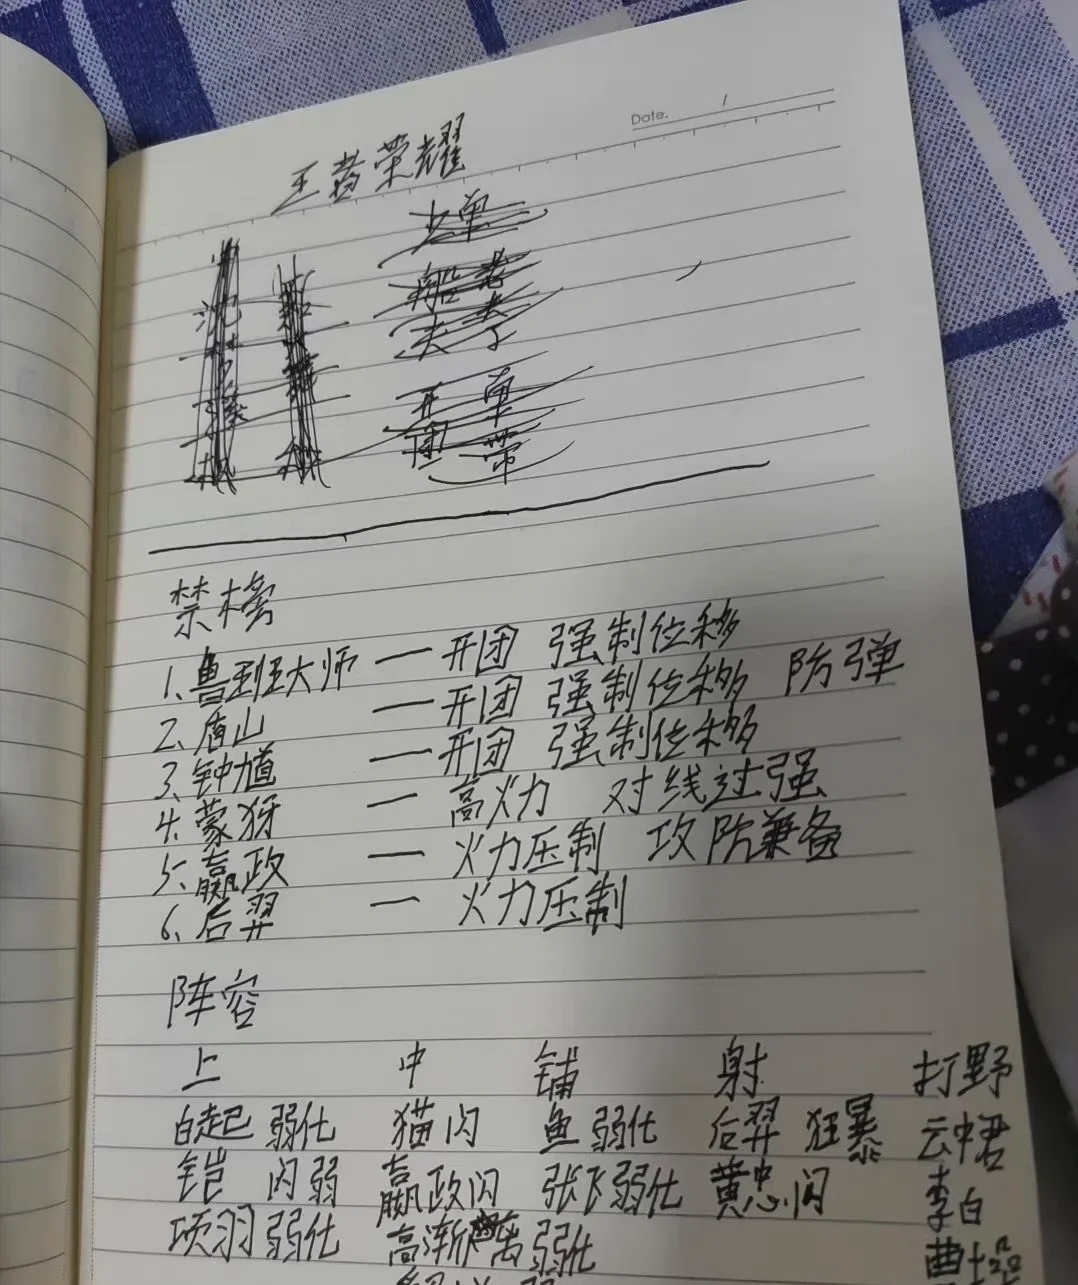 Date.
王者荣耀
禁檎
1、鲁班大师 — 开团 强制位移
2、盾山 — 开团 强制位移 防弹
3、钟馗 — 开团 强制位移
4、蒙犽 — 高火力 对线过强
5、嬴政 — 火力压制 攻防兼备
6、后羿 — 火力压制
阵容
上 中 铺 射 打野
白起 弱化 猫闪 鱼 弱化 后羿 狂暴 云中君
铠 闪弱 嬴政闪 张飞弱化 黄忠闪 李白
项羽弱化 高渐离弱化 曹操